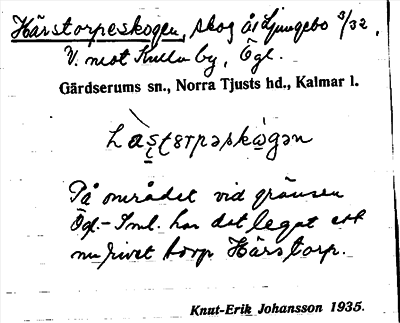 Härstorpeskogen, skog åt Ljungebo 3/32,
V. mot Kulla by, Ögl.
Gärdserums sn., Norra Tjusts hd., Kalmar l.
På området vid gränsen
Ögl.-Sml. har det legat ett
nu rivet torp Härstorp.
Knut-Erik Johansson 1935.